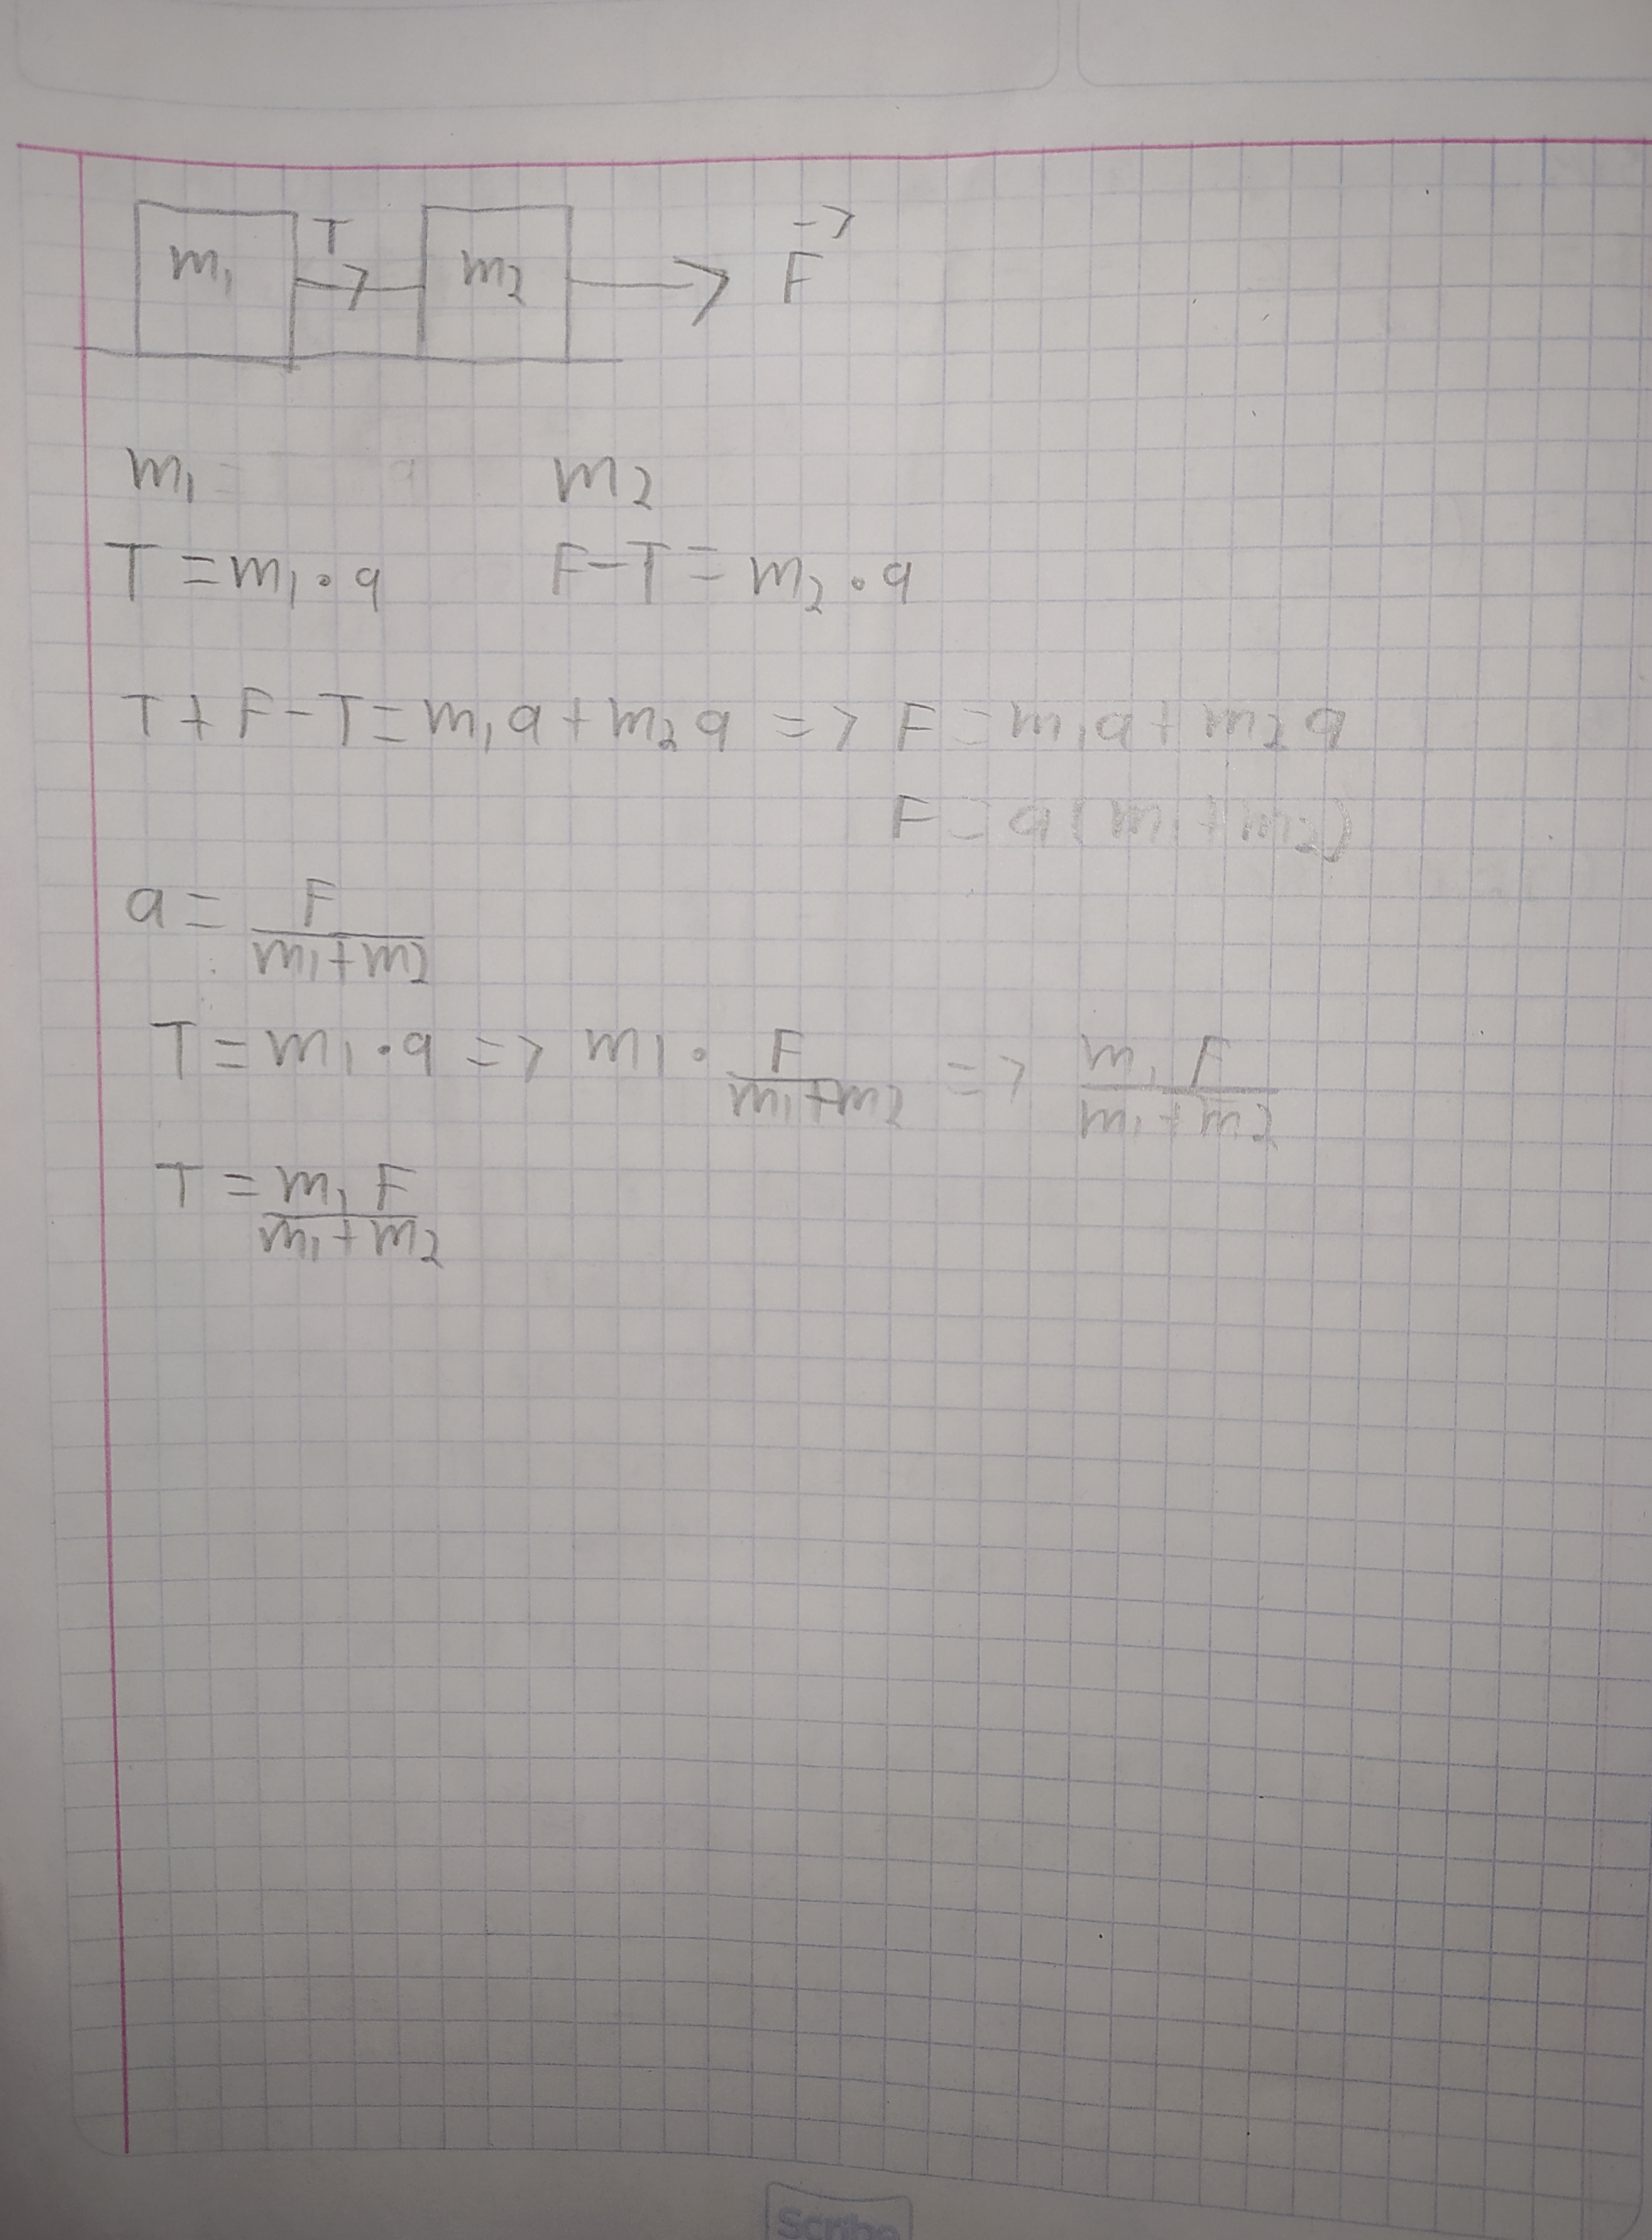 m₁ T m₂ → F
m₁ m₂
T = m₁ · a F - T = m₂ · a
T + F - T = m₁a + m₂a => F = m₁a + m₂a
F = a(m₁ + m₂)
a = F / m₁+m₂
T = m₁ · a => m₁ · F / m₁+m₂ => m₁ F / m₁+m₂
T = m₁ F / m₁+m₂
Scribe